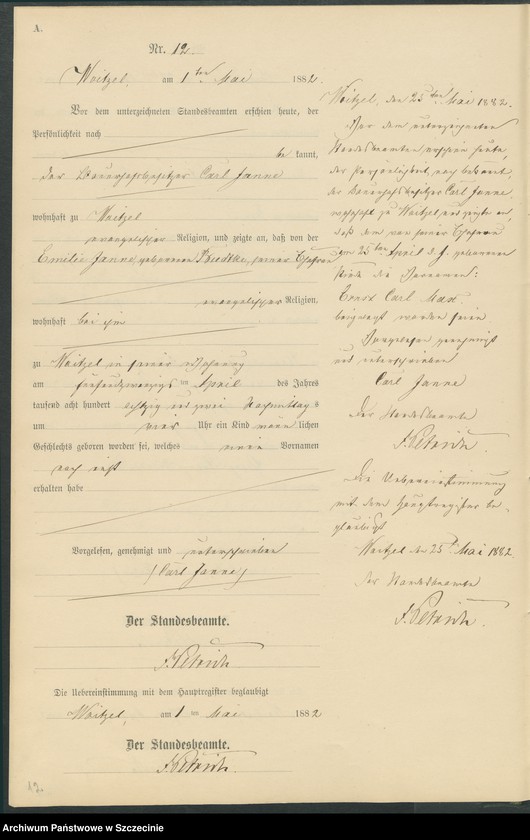 A.
Nr. 12.
Woitzel, am 1ten Mai 1882.
Vor dem unterzeichneten Standesbeamten erschien heute, der
Persönlichkeit nach
be kannt,
der Bauerhofsbesitzer Carl Janne
wohnhaft zu Woitzel
evangelischer Religion, und zeigte an, daß von der
Emilie Janne gebornen Budtke, seiner Ehefrau
evangelischer Religion,
wohnhaft bei ihm
zu Woitzel in seiner Wohnung
am fünfundzwanzigsten April des Jahres
tausend acht hundert achtzig und zwei Nachmittags
um vier Uhr ein Kind männlichen
Geschlechts geboren worden sei, welches einen Vornamen
noch nicht
erhalten habe
Vorgelesen, genehmigt und unterschrieben
(Carl Janne)
Der Standesbeamte.
F. Petrich
Die Uebereinstimmung mit dem Hauptregister beglaubigt
Woitzel, am 1ten Mai 1882
Der Standesbeamte.
F. Petrich.
12.
Woitzel, den 25ten Mai 1882.
Vor dem unterzeichneten
Standesbeamten erschien heute,
der Persönlichkeit nach bekannt,
der Bauerhofsbesitzer Carl Janne
wohnhaft zu Woitzel, und zeigte an,
daß dem von seiner Ehefrau
am 25ten April d. J. gebornen
Kinde die Vornamen:
Ernst Carl Max
beigelegt worden seien
Vorgelesen genehmigt
und unterschrieben
Carl Janne
Der Standesbeamte
F. Petrich.
Die Uebereinstimmung
mit dem Hauptregister be-
glaubigt
Woitzel den 25t Mai 1882
Der Standesbeamte
F. Petrich.
Archiwum Państwowe w Szczecinie